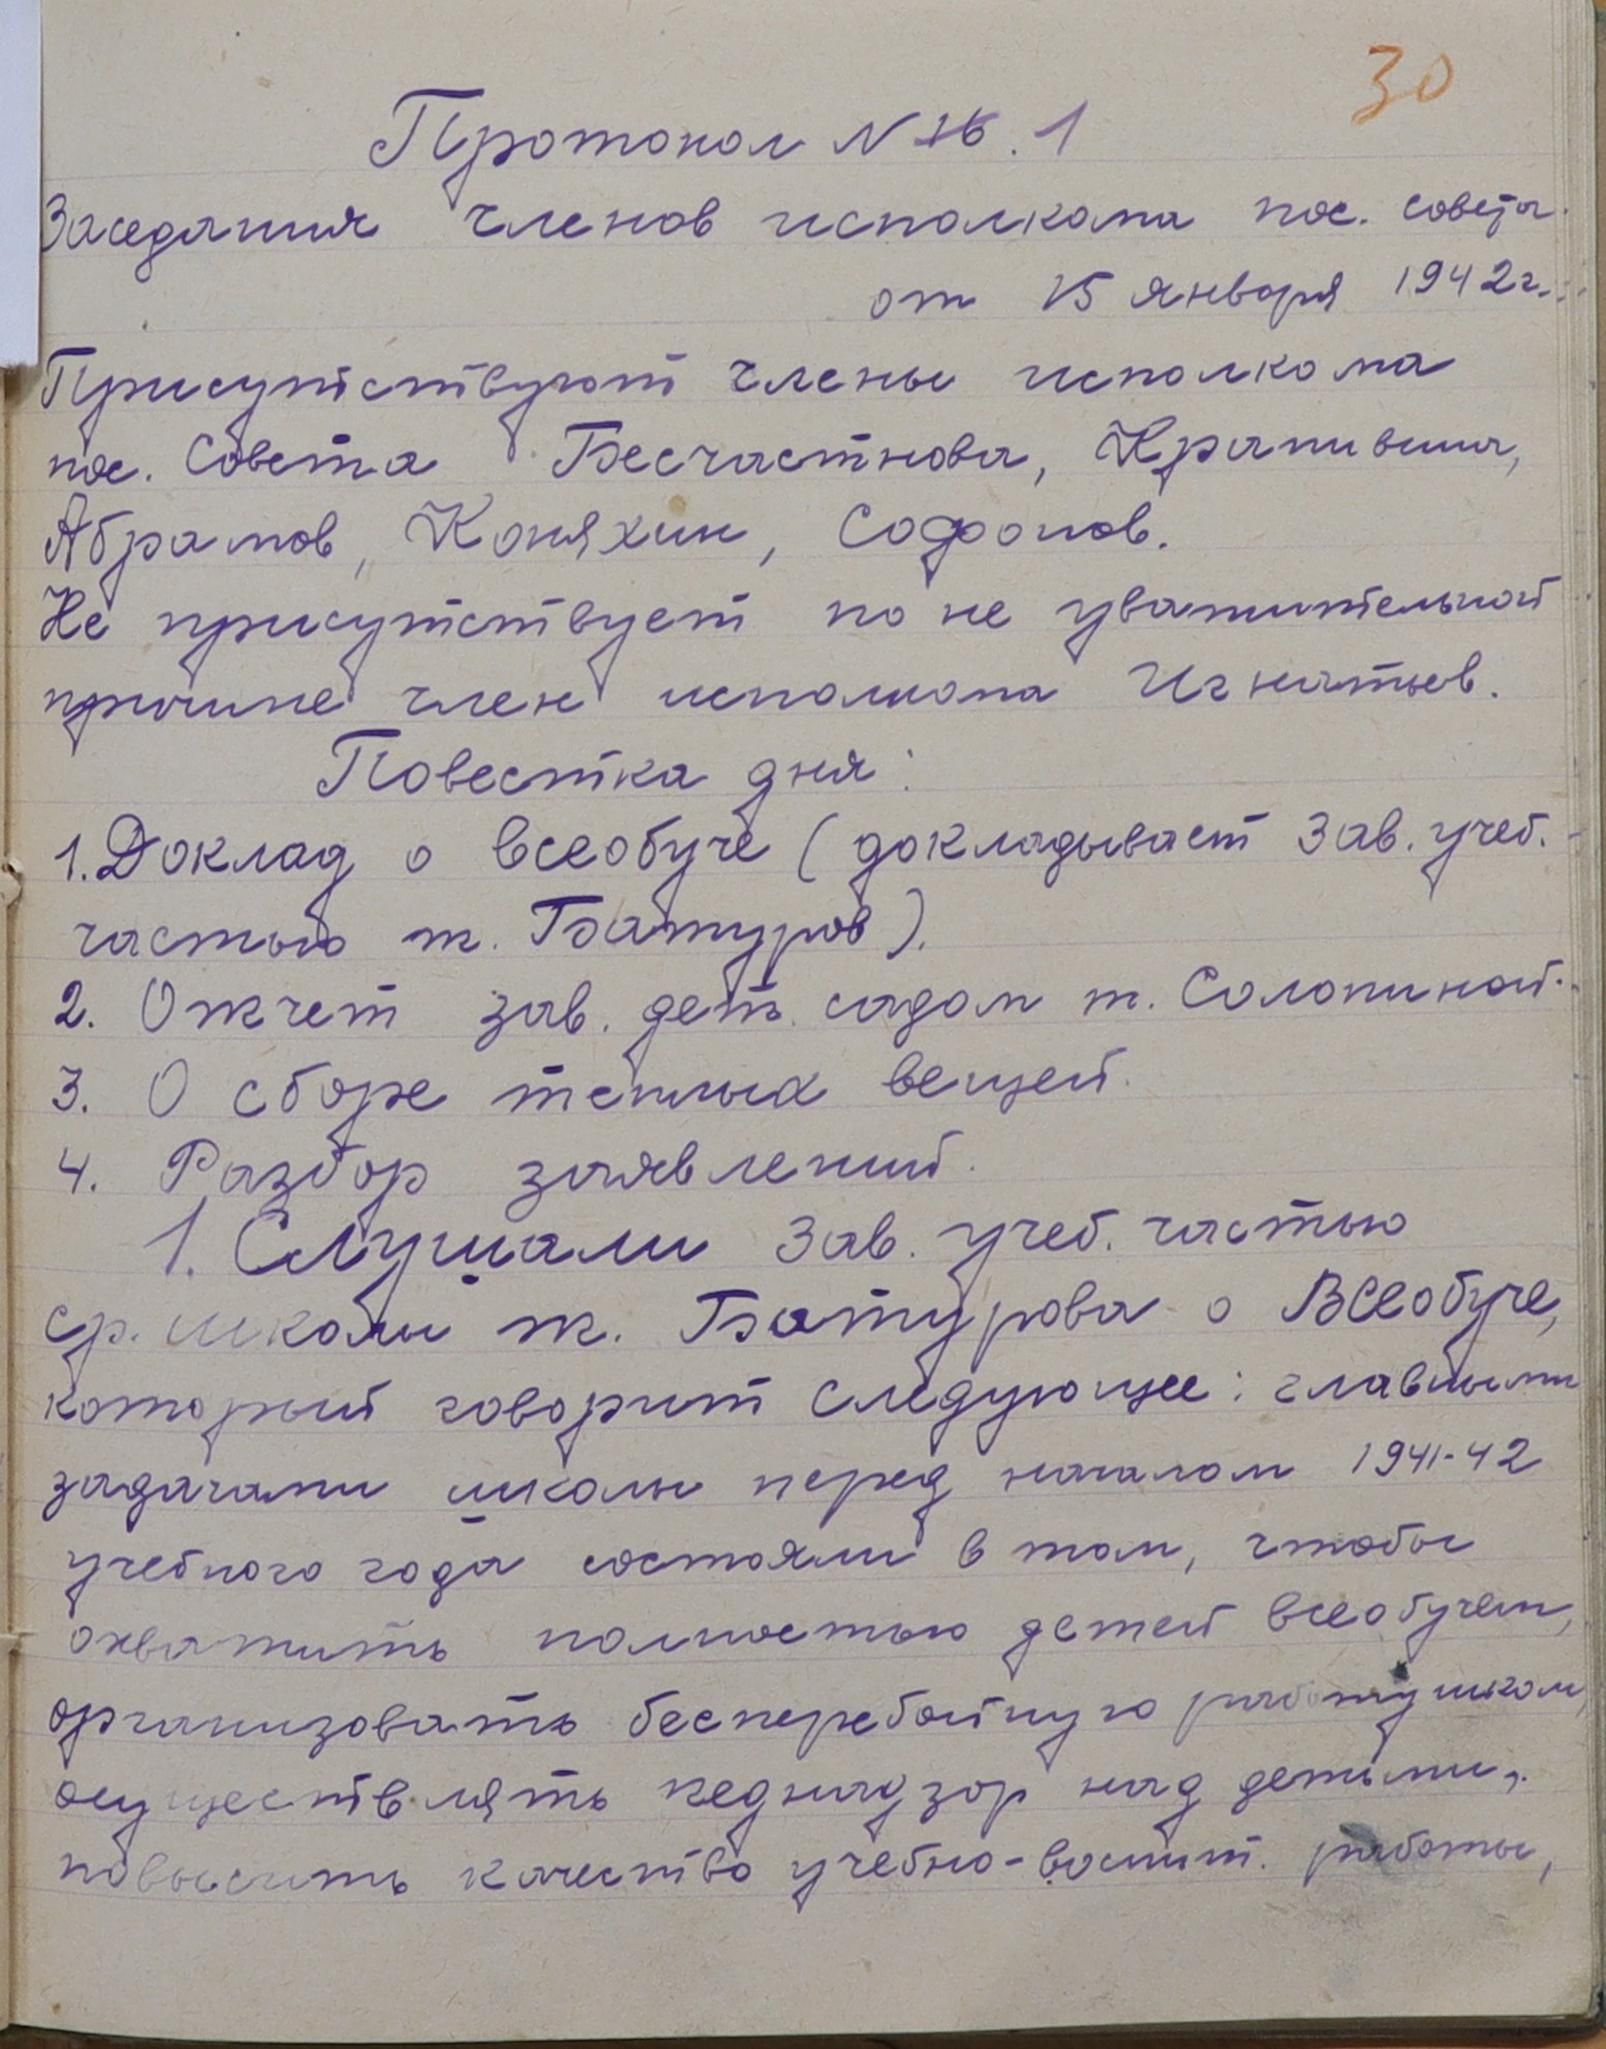 30
Протокол N 16. 1
Заседания членов исполкома пос. совета.
от 15 января 1942г.
Присутствуют члены исполкома
пос. Совета Бесчастнова, Крапивина,
Абрамов, Коняхин, Софронов.
Не присутствует по не уважительной
причине член исполкома Игнатьев.
Повестка дня:
1. Доклад о всеобуче (докладывает зав. учеб.
частью т. Батуров).
2. Отчет зав. дет. садом т. Солониной.
3. О сборе теплых вещей.
4. Разбор заявлений.
1. Слушали зав. учеб. частью
ср. школы т. Батурова о Всеобуче,
который говорит следующее: главными
задачами школы перед началом 1941-42
учебного года состояли в том, чтобы
охватить полностью детей всеобучем,
организовать бесперебойную работу школы,
осуществлять педнадзор над детьми,
повысить качество учебно-воспит. работы,